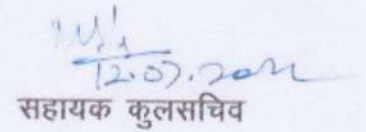 12.07.2022
सहायक कुलसचिव